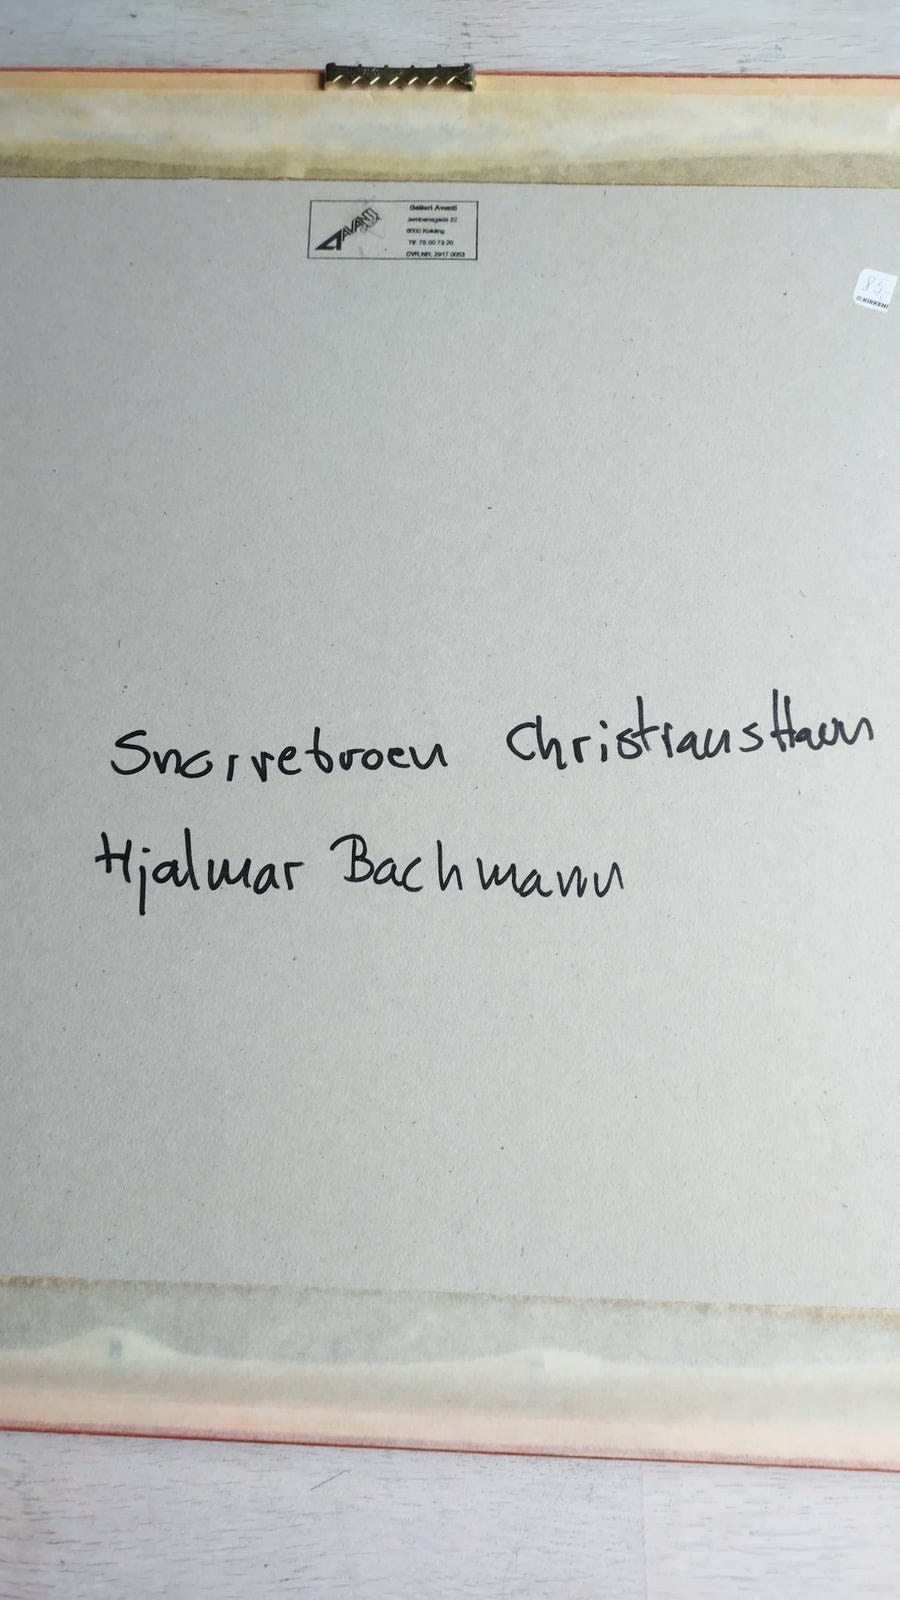 AVANTI
Galleri Avanti
Jernbanegade 22
6000 Kolding
Tlf. 75 50 73 20
CVR.NR. 2917 0053
85
KIRKENS
Snorrebroen ChristiansHavn
Hjalmar Bachmann